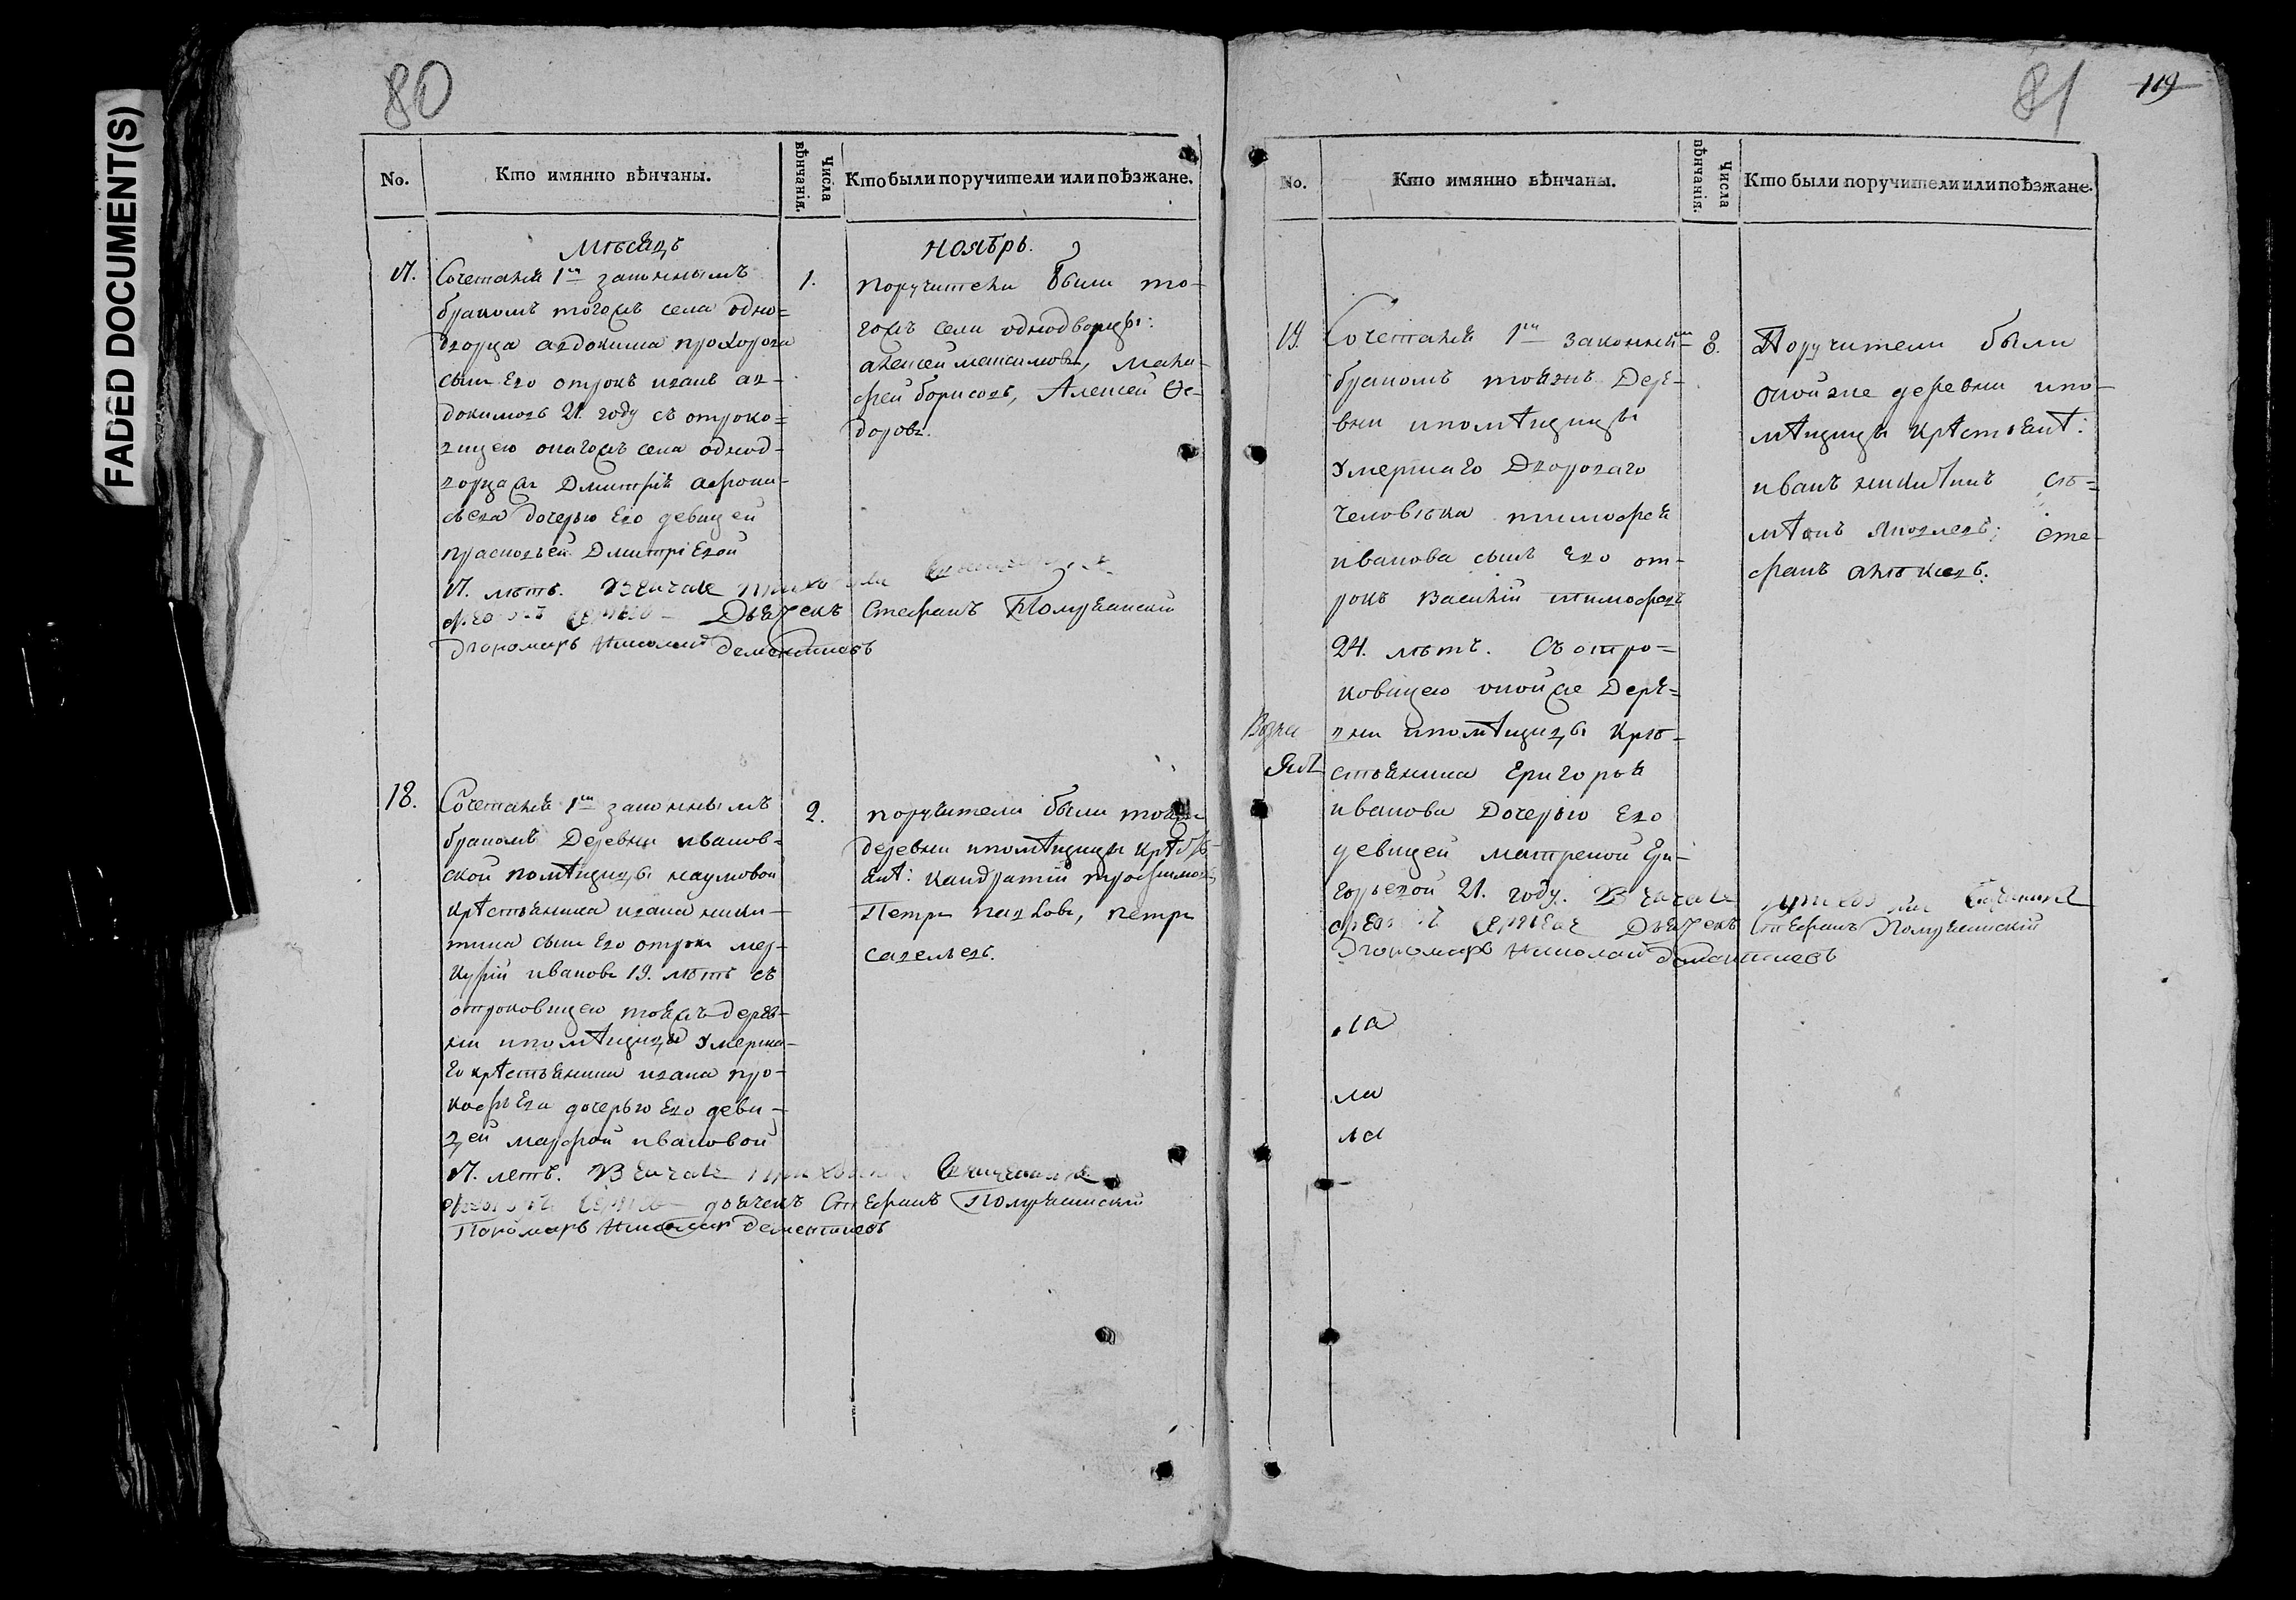 FADED DOCUMENT(S)
80
No.
Кто имянно вѣнчаны.
Числа вѣнчанія.
Кто были поручители или поѣзжане.
Мѣсяцъ
Ноябрь.
17.
Сочетанъ 1м законнымъ
бракомъ тогожъ села одно=
дворца авдокима прохорова
сынъ Его отрокъ иванъ ав-
докимовъ 21. году съ отроко=
вицею онагожъ села однод-
ворца Дмитрія афона-
сьева дочерью Его девицей
прасковьей Дмитріевой
17. лѣтъ. Венчалъ
Дьячекъ Стефанъ Полужинскій
Пономарь Николай дементиевъ
1.
поручители были то-
гожъ села однодворцы:
алексей максимовъ, мака-
рей борисовъ, Алексей Ѳе-
доровъ.
18.
Сочетанъ 1м законнымъ
бракомъ Деревни иванов-
ской помѣщицы наумовой
крѣстьянина ивана ники-
тина сынъ Его отрокъ мер-
курій ивановъ 19. лѣтъ съ
отроковицею тояжъ дерев-
ни ипомѣщицы умерша-
го крѣстьянина ивана про-
кофьева дочерью Его деви-
цей марфой ивановой
17. летъ. Венчалъ
дьячекъ Стефанъ Полужинскій
Пономарь Николай дементиевъ
2.
поручители были тояжъ
деревни ипомѣщицы крѣстья-
анѣ: кандратій трофимовъ
Петръ павловъ, петръ
савельевъ.
81
119
No.
Кто имянно вѣнчаны.
Числа вѣнчанія.
Кто были поручители или поѣзжане.
19.
Сочетанъ 1м законнымъ
бракомъ тояжъ Дере-
вни ипомѣщицы
умершаго Двороваго
человѣка тимофея
иванова сынъ Его от-
рокъ Василій тимофеевъ
24. лѣтъ. Съ отро=
ковицею онойже Дере=
вни ипомѣщицы крѣ-
стьянина Григорья
иванова Дочерью Его
девицей матреной Гри-
горьевой 21. году. Венчалъ
Дьячекъ Стефанъ Полужинскій
Пономарь Николай дементиевъ
8.
Поручители были
онойже деревни ипо-
мѣщицы крѣстьянѣ:
иванъ никитинъ Се=
мѣнъ Яковлевъ; Сте-
фанъ
ла
ла
ла